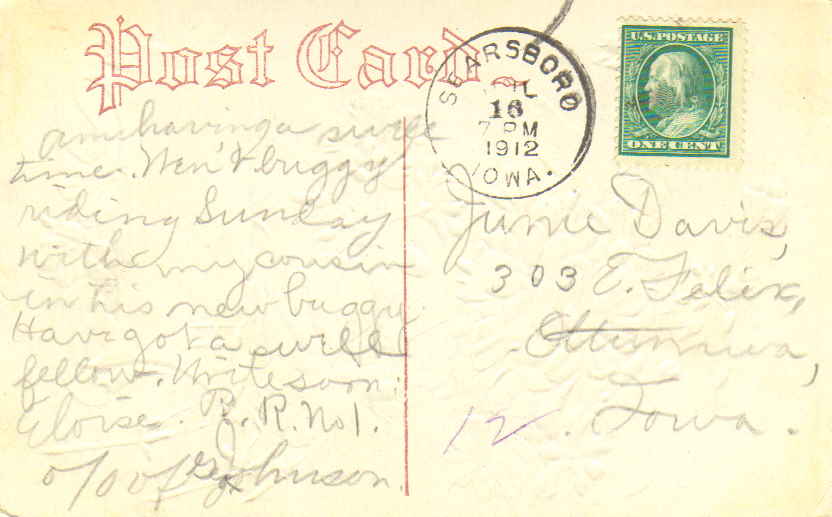 Post Card
SEARSBORO
16
7 PM
1912
IOWA.
U.S. POSTAGE
ONE CENT
am having a swell
time. Wen't buggy
riding Sunday
with my cousin
in his new buggy.
Have got a swell
fellow. Write soon.
Eloise. R. R. No 1.
Johnson.
Junie Davis,
303 E. Felix,
Ottumwa,
Iowa.
12